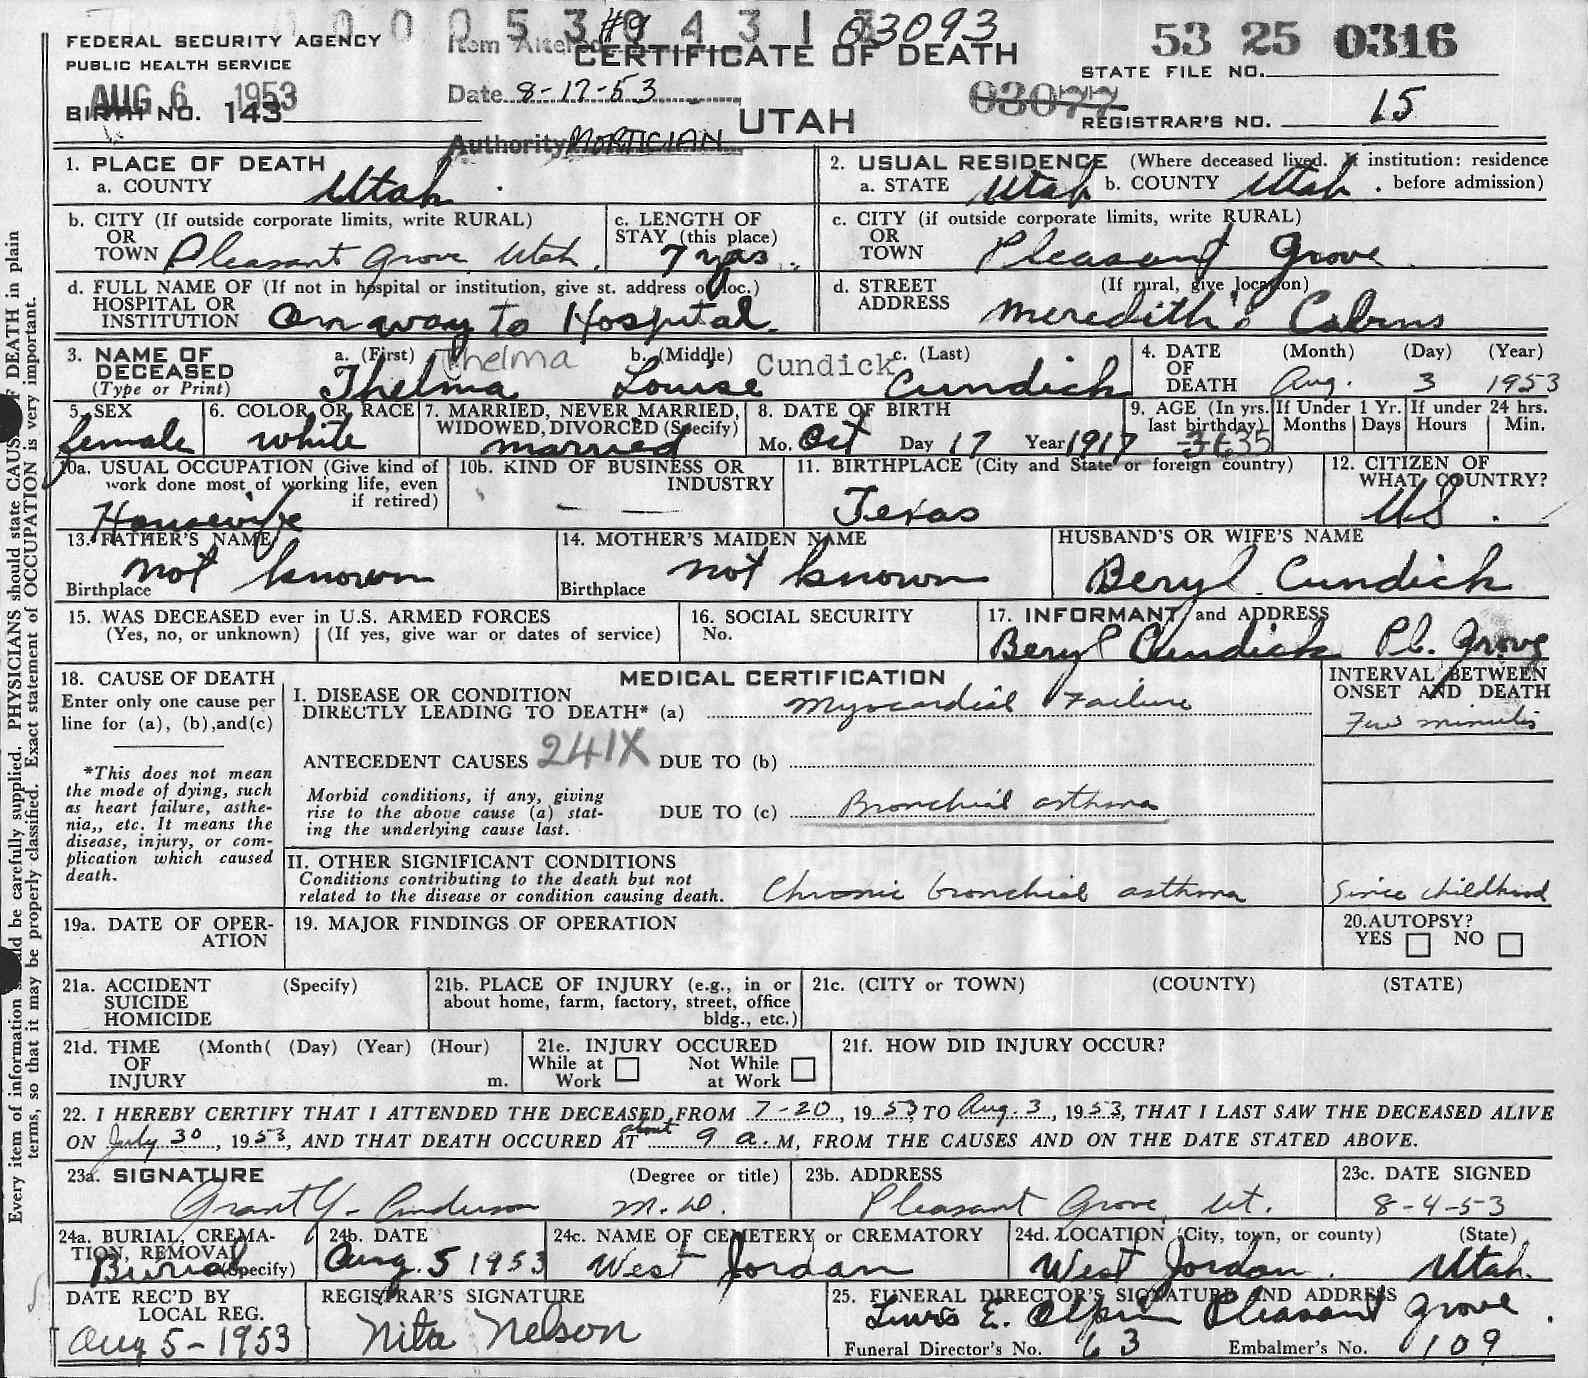 0 0 0 5 3 0 4 3 1 #9 03093
FEDERAL SECURITY AGENCY
PUBLIC HEALTH SERVICE
AUG 6 1953
BIRTH NO. 143
Item Altered
Date 8-17-53
Authority MORTICIAN
CERTIFICATE OF DEATH
UTAH
53 25 0316
STATE FILE NO.
03077
REGISTRAR'S NO. 15
1. PLACE OF DEATH
a. COUNTY Utah
2. USUAL RESIDENCE (Where deceased lived. If institution: residence
a. STATE Utah b. COUNTY Utah . before admission)
b. CITY (If outside corporate limits, write RURAL)
OR
TOWN Pleasant Grove Utah.
c. LENGTH OF
STAY (this place)
7 yrs.
c. CITY (if outside corporate limits, write RURAL)
OR
TOWN Pleasant Grove
d. FULL NAME OF (If not in hospital or institution, give st. address or loc.)
HOSPITAL OR
INSTITUTION On way to Hospital.
d. STREET (If rural, give location)
ADDRESS Meredith's Cabins
3. NAME OF
DECEASED
(Type or Print)
a. (First) Thelma b. (Middle) Cundick c. (Last)
Thelma Louise Cundick
4. DATE
OF
DEATH
(Month) (Day) (Year)
Aug. 3 1953
5. SEX
female
6. COLOR OR RACE
white
7. MARRIED, NEVER MARRIED,
WIDOWED, DIVORCED (Specify)
married
8. DATE OF BIRTH
Mo. Oct Day 17 Year 1917
9. AGE (In yrs.
last birthday)
36 35
If Under 1 Yr.
Months Days
If under 24 hrs.
Hours Min.
10a. USUAL OCCUPATION (Give kind of
work done most of working life, even
if retired)
Housewife
10b. KIND OF BUSINESS OR
INDUSTRY
— —
11. BIRTHPLACE (City and State or foreign country)
Texas
12. CITIZEN OF
WHAT COUNTRY?
US .
13. FATHER'S NAME
not known
Birthplace
14. MOTHER'S MAIDEN NAME
not known
Birthplace
HUSBAND'S OR WIFE'S NAME
Beryl Cundick
15. WAS DECEASED ever in U.S. ARMED FORCES
(Yes, no, or unknown) (If yes, give war or dates of service)
16. SOCIAL SECURITY
No.
17. INFORMANT and ADDRESS
Beryl Cundick Pl. Grove
18. CAUSE OF DEATH
Enter only one cause per
line for (a), (b), and (c)
*This does not mean
the mode of dying, such
as heart failure, asthe-
nia,, etc. It means the
disease, injury, or com-
plication which caused
death.
MEDICAL CERTIFICATION
I. DISEASE OR CONDITION
DIRECTLY LEADING TO DEATH* (a) Myocardial Failure
INTERVAL BETWEEN
ONSET AND DEATH
Few minutes
ANTECEDENT CAUSES 241X DUE TO (b)
Morbid conditions, if any, giving
rise to the above cause (a) stat-
ing the underlying cause last.
DUE TO (c) Bronchial asthma
II. OTHER SIGNIFICANT CONDITIONS
Conditions contributing to the death but not
related to the disease or condition causing death.
Chronic bronchial asthma Since childhood
19a. DATE OF OPER-
ATION
19. MAJOR FINDINGS OF OPERATION
20. AUTOPSY?
YES NO
21a. ACCIDENT (Specify)
SUICIDE
HOMICIDE
21b. PLACE OF INJURY (e.g., in or
about home, farm, factory, street, office
bldg., etc.)
21c. (CITY or TOWN) (COUNTY) (STATE)
21d. TIME (Month( (Day) (Year) (Hour)
OF
INJURY m.
21e. INJURY OCCURED
While at Work Not While at Work
21f. HOW DID INJURY OCCUR?
22. I HEREBY CERTIFY THAT I ATTENDED THE DECEASED FROM 7-20, 1953 TO Aug. 3, 1953, THAT I LAST SAW THE DECEASED ALIVE
ON July 30, 1953, AND THAT DEATH OCCURED AT about 9 a. M, FROM THE CAUSES AND ON THE DATE STATED ABOVE.
23a. SIGNATURE (Degree or title)
Grant Y. Anderson M.D.
23b. ADDRESS
Pleasant Grove, Ut.
23c. DATE SIGNED
8-4-53
24a. BURIAL, CREMA-
TION, REMOVAL
Burial (Specify)
24b. DATE
Aug. 5 1953
24c. NAME OF CEMETERY or CREMATORY
West Jordan
24d. LOCATION (City, town, or county) (State)
West Jordan. Utah.
DATE REC'D BY
LOCAL REG.
Aug 5-1953
REGISTRAR'S SIGNATURE
Nita Nelson
25. FUNERAL DIRECTOR'S SIGNATURE AND ADDRESS
Lewis E. Olpin Pleasant Grove.
Funeral Director's No. 63 Embalmer's No. 109
Every item of information should be carefully supplied. PHYSICIANS should state CAUSE OF DEATH in plain
terms, so that it may be properly classified. Exact statement of OCCUPATION is very important.